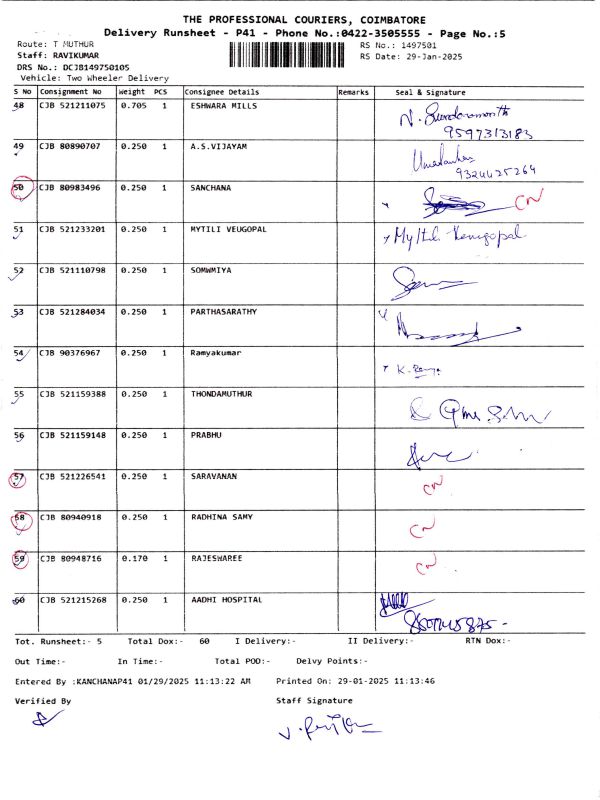 THE PROFESSIONAL COURIERS, COIMBATORE
Delivery Runsheet - P41 - Phone No.:0422-3505555 - Page No.:5
Route: T MUTHUR RS No.: 1497501
Staff: RAVIKUMAR RS Date: 29-Jan-2025
DRS No.: DCJB149750105
Vehicle: Two Wheeler Delivery
S No Consignment No Weight PCS Consignee Details Remarks Seal & Signature
48 CJB 521211075 0.705 1 ESHWARA MILLS
9597313183
49 CJB 80890707 0.250 1 A.S.VIJAYAM
9324425264
50 CJB 80983496 0.250 1 SANCHANA CN
51 CJB 521233201 0.250 1 MYTILI VEUGOPAL Mytili Venugopal
52 CJB 521110798 0.250 1 SOMWMIYA
53 CJB 521284034 0.250 1 PARTHASARATHY
54 CJB 90376967 0.250 1 Ramyakumar K. Ramya
55 CJB 521159388 0.250 1 THONDAMUTHUR
56 CJB 521159148 0.250 1 PRABHU
57 CJB 521226541 0.250 1 SARAVANAN CN
58 CJB 80940918 0.250 1 RADHINA SAMY CN
59 CJB 80948716 0.170 1 RAJESWAREE CN
60 CJB 521215268 0.250 1 AADHI HOSPITAL
Tot. Runsheet:- 5 Total Dox:- 60 I Delivery:- II Delivery:- RTN Dox:-
Out Time:- In Time:- Total POD:- Delvy Points:-
Entered By :KANCHANAP41 01/29/2025 11:13:22 AM Printed On: 29-01-2025 11:13:46
Verified By Staff Signature